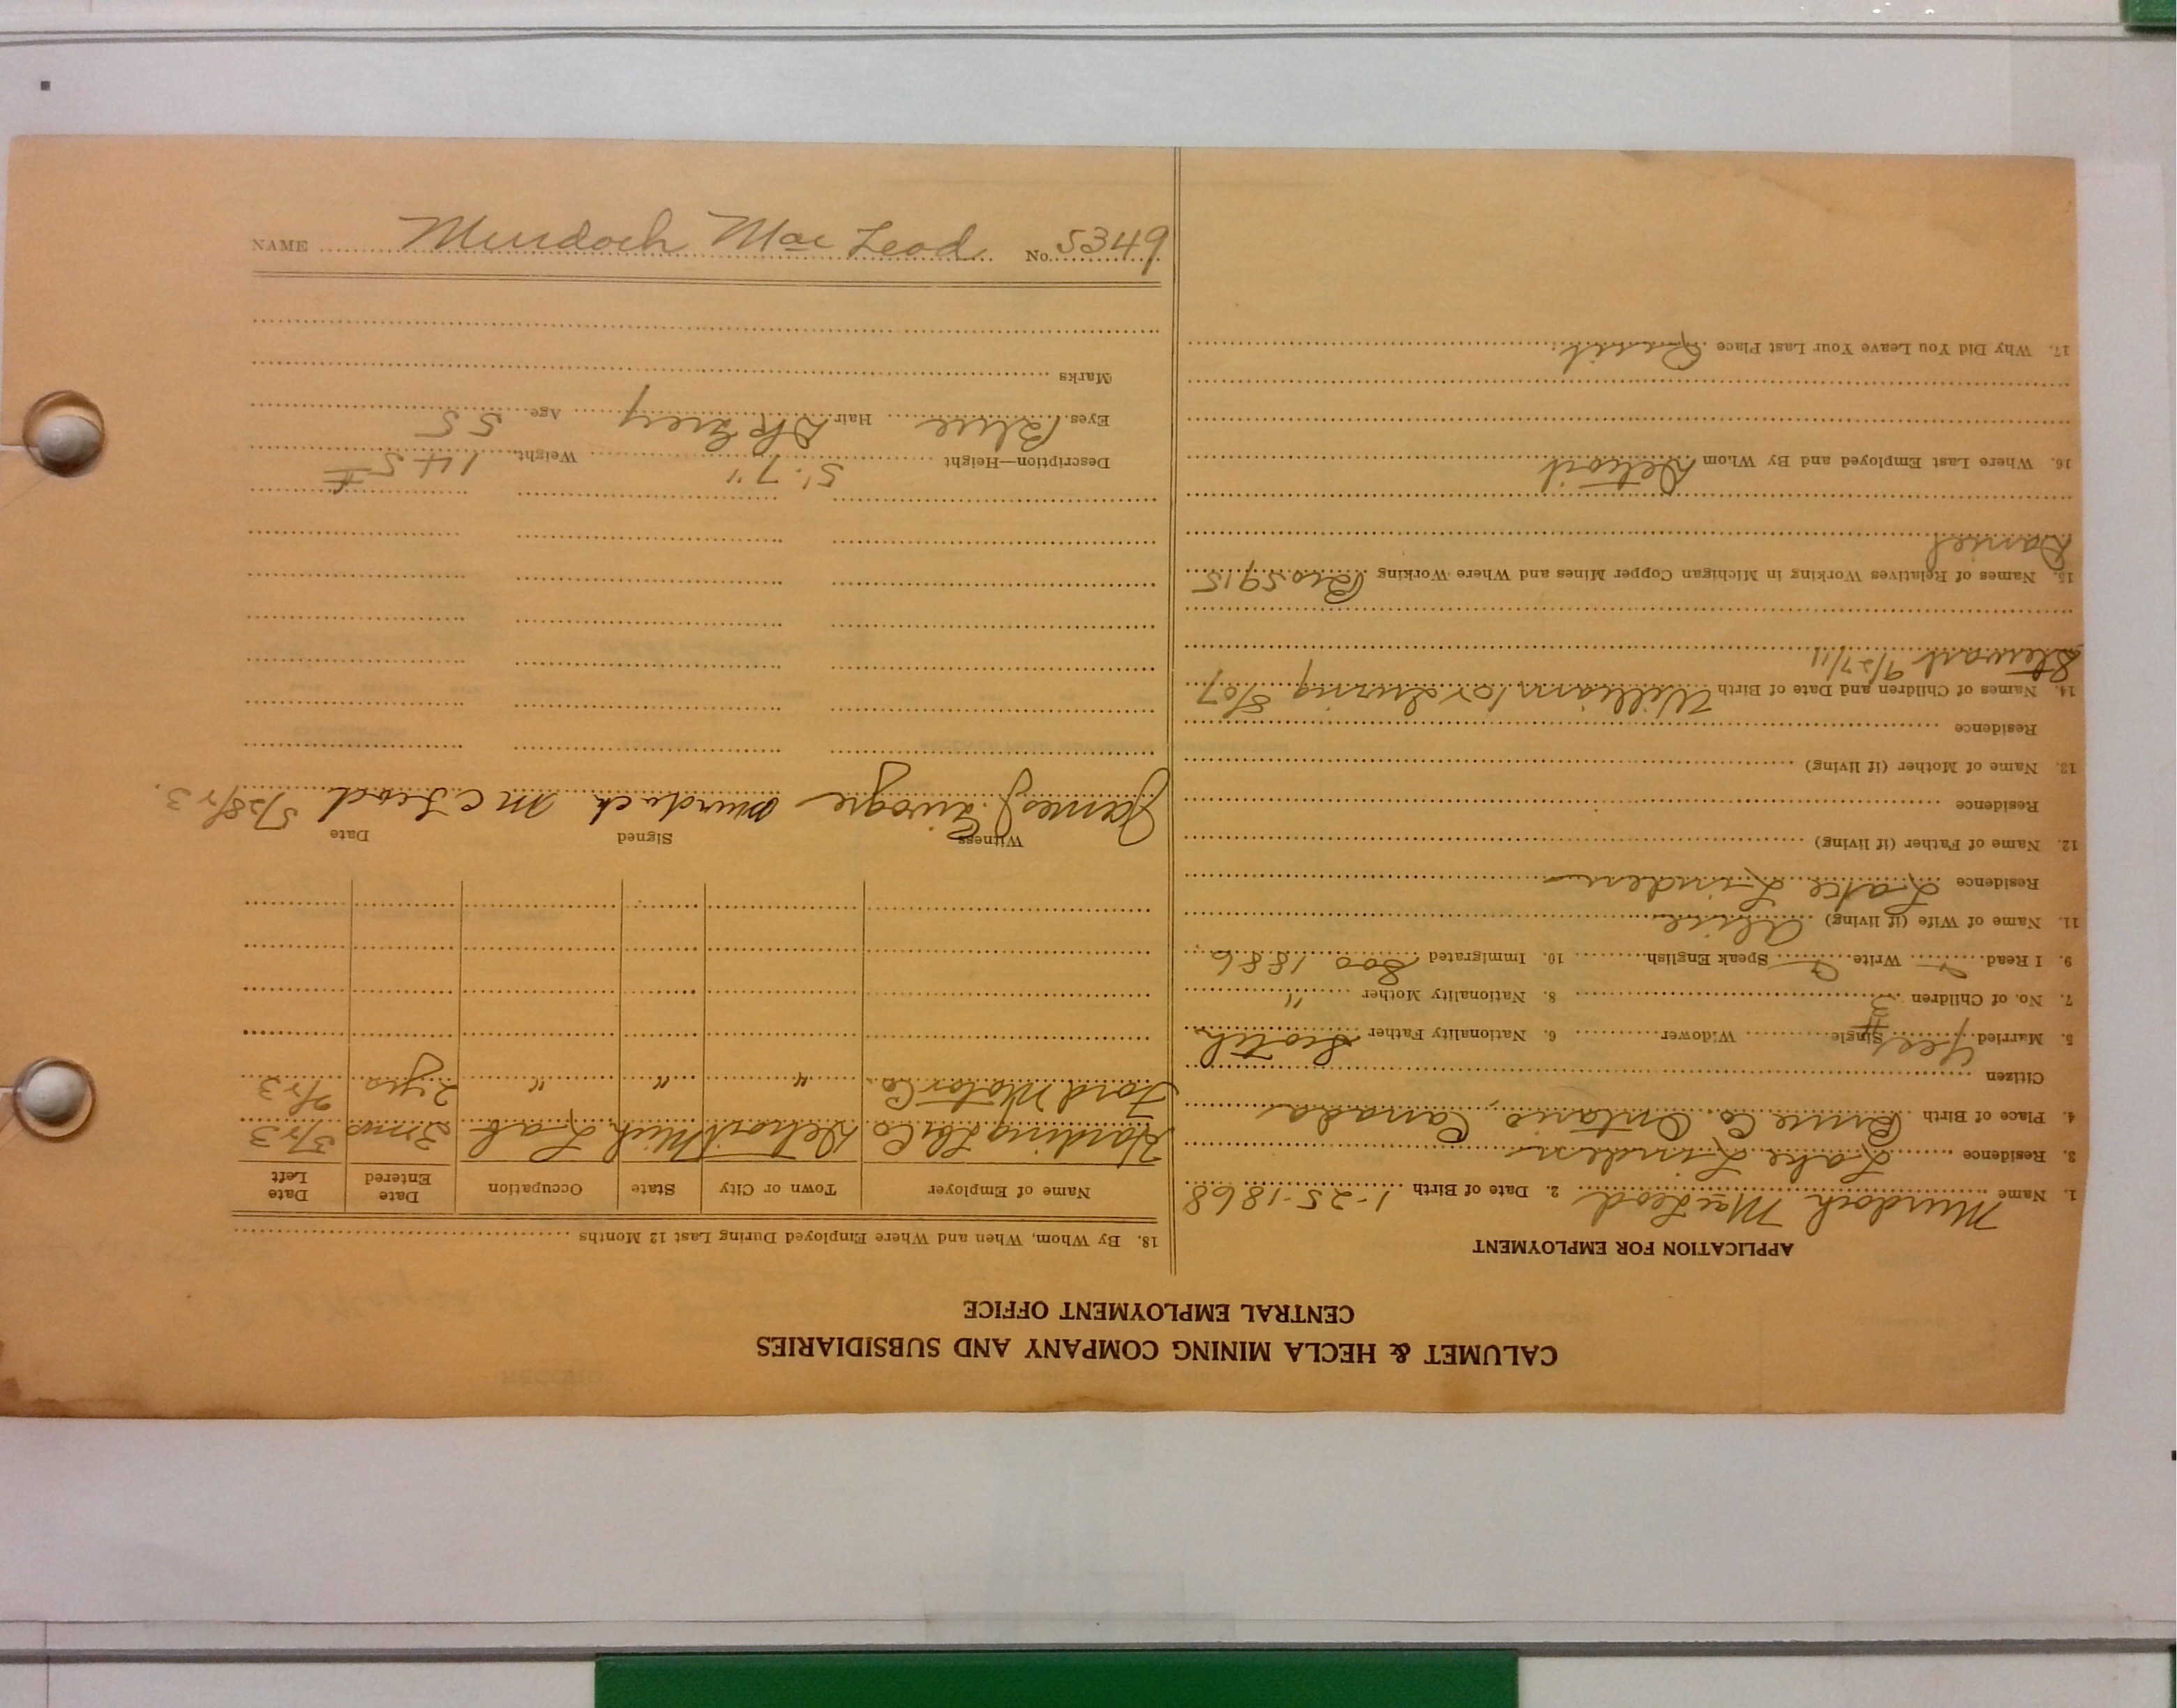 CALUMET & HECLA MINING COMPANY AND SUBSIDIARIES
CENTRAL EMPLOYMENT OFFICE
APPLICATION FOR EMPLOYMENT
1. Name Murdoch MacLeod 2. Date of Birth 1-25-1868
3. Residence Lake Linden
4. Place of Birth Bruce Co. Ontario, Canada
Citizen
5. Married Yes Single Widower 6. Nationality Father Scotch
7. No. of Children 8. Nationality Mother "
9. I Read Write Speak English 10. Immigrated Soo 1886
11. Name of Wife (if living) Alice
Residence Lake Linden
12. Name of Father (if living)
Residence
13. Name of Mother (if living)
Residence
14. Names of Children and Date of Birth William 8/07
Stewart 9/27/11
15. Names of Relatives Working in Michigan Copper Mines and Where Working Bro 5915
Daniel
16. Where Last Employed and By Whom Detroit
17. Why Did You Leave Your Last Place Quit
18. By Whom, When and Where Employed During Last 12 Months
Name of Employer Town or City State Occupation Date Entered Date Left
Harding Co Detroit Mich Lab 3 mos 5/23
Ford Motor Co. " " " 2 yrs 2/23
Witness Signed Date
James J. Murdoch McLeod 5/28/23.
Description—Height 5' 7" Weight 145 #
Eyes Blue Hair Dk Grey Age 55
Marks
NAME Murdoch Mac Leod No. 5349